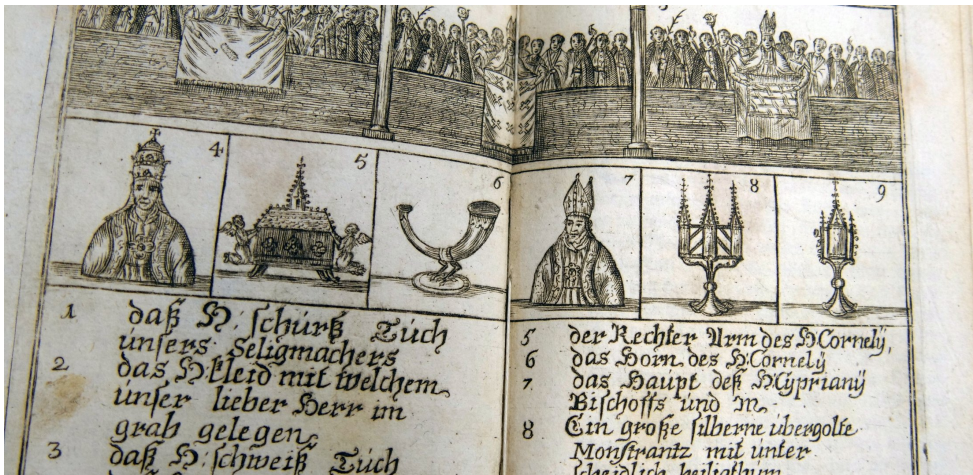 4
5
6
7
8
9
1 daß H: schürtz Tuch
unsers Seligmachers
2 das H: kleid mit welchem
unser lieber Herr im
grab gelegen
3 daß H: schweiß Tuch
5 der Rechter Arm des H Cornelÿ,
6 das Horn des H: Cornelÿ
7 das Haupt deß H Cÿprianÿ
Bischoffs und M.
8 Ein große silberne übergolte
Monstrantz mit unter
scheidlich heiligthum